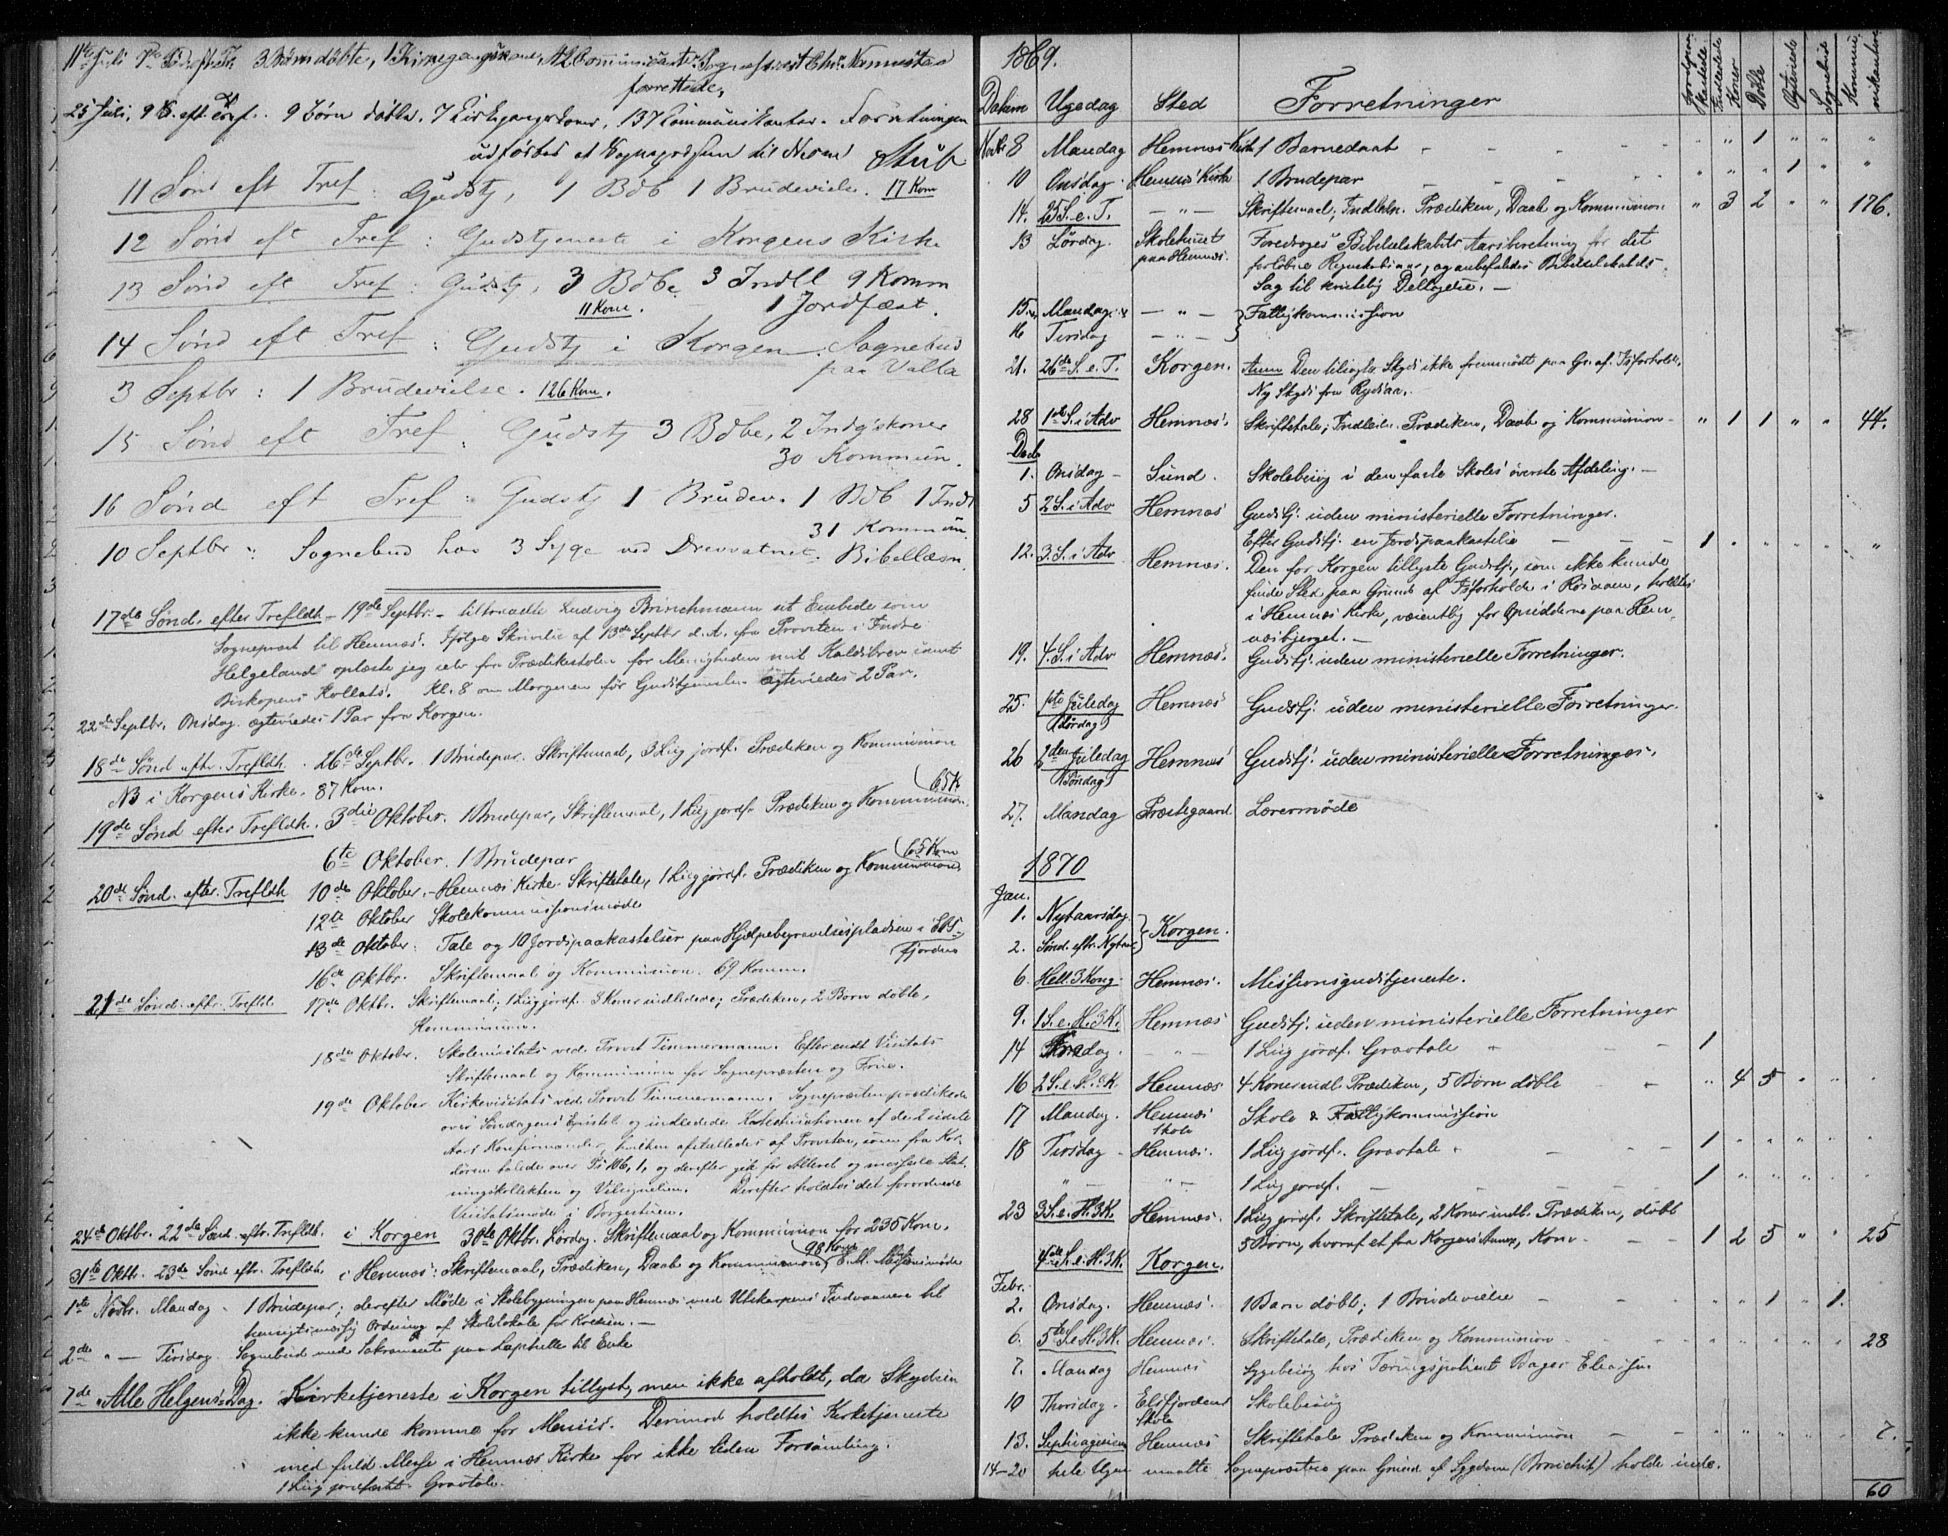 11te Juli 7de S. eft. Tref. 3 Børn døbte, 1 Kirkegangskone, 42 Communicanter. Sognepræst Chr. Nannestad
forrettede.
25 Juli, 9 S. eft. Tref. 9 Børn døbte, 7 Kirkgangskoner, 137 Communikanter. Forretningen
udførtes af Sognepræsten til Nesne Stub
11 Sønd eft Tref: Gudstj, 1 Bdb 1 Brudeviels. 17 Kom
12 Sønd eft Tref: Gudstjeneste i Korgens Kirke
13 Sønd eft Tref: Gudstj, 3 Bdbe 3 Indll 9 Komm
11 Kom. 1 Jordfæst.
14 Sønd eft Tref: Gudstj i Korgen. Sognebud
paa Valla
3 Septbr: 1 Brudevielse. 126 Kom.
15 Sønd eft Tref: Gudstj 3 Bdbe, 2 Indg'skoner
30 Kommun.
16 Sønd eft Tref: Gudstj 1 Brudev. 1 Bdb 1 Indl
31 Kommun
10 Septbr: Sognebud hos 3 Syge ved Drevvatnet. Bibellæsn.
17de Sønd. efter Trefldh - 19de Septbr. - tiltraadte Ludvig Brinchmann sit Embede som
Sognepræst til Hemnæs. Ifølge Skrivelse af 13de Septbr d. A. fra Provsten i Indre
Helgeland oplæste jeg selv fra Prædikestolen for Menigheden mit Kaldsbrev samt
Biskopens Kollats. Kl. 8 om Morgenen før Gudstjenesten ægteviedes 2 Par.
22de Septbr. Onsdag ægteviedes 1 Par fra Korgen.
18de Sønd. eftr. Trefldh. 26de Septbr. 1 Brudepar. Skriftemaal, 3 Liig jordf. Prædiken og Kommunion
NB i Korgens Kirke. 87 Kom.
65 K
19de Sønd efter Trefldh. 3die Oktober. 1 Brudepar, Skriftemaal, 1 Liig jordf. Prædiken og Kommunion.
6te Oktober. 1 Brudepar
65 Kom
20de Sønd. efter Trefldh 10de Oktober. - Hemnæs Kirke. Skriftetale, 1 Liig jordf. Prædiken og Kommunion
12te Oktober Skolekommissionsmøde
13de Oktober: Tale og 10 Jordspaakastelser paa Hjælpebegravelsespladsen i Els-
fjorden
16de Oktbr. Skriftemaal og Kommunion. 69 Komm.
21de Sønd. eftr. Trefldh. 17de Oktbr. Skriftemaal; 1 Liig jordf. 3 Koner indledede; Prædiken, 2 Børn døbte,
Kommunion.
18de Oktober. Skolevisitats ved Provst Timmermann. Efter endt Visitats
Skriftemaal og Kommunion for Sognepræsten og Frue.
19de Oktober Kirkevisitats ved Provst Timmermann. Sognepræsten prædikede
over Søndagens Epistel og indledede Katechisationen af det sidste
Aars Konfirmander, hvilken afsluttedes af Provsten, som fra Kor-
døren talede over Ps 106, 1, og derefter gik for Alteret og messede Slut-
ningskollekten og Velsignelsen. Derefter holdtes det forordnede
Visitatsmøde i Borgestuen.
24de Oktbr. 22de Sønd. eftr. Trefldh. i Korgen 30te Oktbr. Lørdag. Skriftemaal og Kommunion for 235 Kom.
98 Kom
31te Oktbr. 23de Sønd eftr. Trefldh. i Hemnæs: Skriftemaal, Prædiken, Daab og Kommunion. E. M. Missionsmøde
1ste Novbr. Mandag. 1 Brudepar; derefter Møde i Skolebygningen paa Hemnæs med Utskarpens Indvaanere til
hensigtsmæssig Ordning af Skolelokale for Kredsen. —
2de " — Tirsdag. Sognebud med Sakramente paa
7de "Alle Helgens" Dag. Kirketjeneste i Korgen tillyst, men ikke afholdt, da Skydsen
ikke kunde komme for Menisis. Derimod holdtes Kirketjeneste
med fuld Messe i Hemnæs Kirke for ikke liden Forsamling.
1 Liig jordfæstet. Gravtale.
1869.
Datum Ugedag Sted Forretninger Jordspaakastede Indledede Koner Døbte Ægteviede Sognebud Kommunikanter
Novbr 8 Mandag Hemnæs Kirke 1 Barnedaab - - - " 1 " " "
10 Onsdag. Hemnæs Kirke 1 Brudepar - - - " " " 1 " "
14. 25 S. e. T. — " — Skriftemaal; Indledn. Prædiken, Daab og Kommunion " 3 2 " " 176.
13 Lørdag. Skolehuset paa Hemnæs. Foredroges Bibelselskabets Aarsberetning for det
forløbne Regnskabsaar, og anbefaledes Bibelselskabets
Sag til kristelig Deltagelse. —
15. Mandag — " — } Fattigkommission
16 Tirsdag — " — }
21. 26de S. e. T. Korgen. Anm Den tilsagte Skyds ikke fremmødt paa Gr. af Isforhold.
Ny Skyds fra Rydsaa.
28 1ste S. i Adv Hemnæs. Skriftetale; Indledn. Prædiken, Daab og Kommunion - " 1 1 " " 44.
Decb
1. Onsdag - Sund. Skolebesøg i den faste Skoles øverste Afdeling. —
5 2 S. i Adv Hemnæs Gudstj. uden ministerielle Forretninger.
Efter Gudstj. en Jordspaakastelse - - - 1 " " " " "
12. 3. S. i Adv Hemnæs. Den for Korgen tillyste Gudstj., som ikke kunde
finde Sted paa Grund af Isforholde i Røsaaen, holdtes
i Hemnæs Kirke, væsentlig for Opsidderne paa Hem-
næsbjerget. —
19. 4. S. i Adv Hemnæs. Gudstj. uden ministerielle Forretninger.
25. 1ste Juledag (Lørdag) Hemnæs Gudstj. uden ministerielle Forretninger.
26 2den Juledag (Søndag) Hemnæs Gudstj. uden ministerielle Forretninger.
27. Mandag Præstegaard. Lærermøde
1870
Jan.
1. Nytaarsdag } Korgen.
2. Sønd. eftr. Nytaar }
6. Hell. 3 Kong. Hemnæs. Missionsgudstjeneste.
9. 1 S. e. H. 3 K. Hemnæs Gudstj. uden ministerielle Forretninger
14 Fredag. — " — 1 Liig jordf. Gravtale - - 1
16 2 S. e. H. 3 K. Hemnæs 4 Koner indl. Prædiken, 5 Børn døbte - " 4 5 " " "
17 Mandag. Hemnæs Skole Skole & Fattigkommission
18 Tirsdag - Hemnæs. 1 Liig jordf. Gravtale - - 1 " " " " "
" " - 1 Liig jordf. - - - 1 " " " " "
23 3 S. e. H. 3 K. Hemnæs. 1 Liig jordf. Skriftetale, 2 Koner indl. Prædiken, døbt
5 Børn, hvoraf et fra Korgens Annex, Kom. - - 1 2 5 " " 25
4de S. e. H. 3 K. Korgen.
Febr.
2. Onsdag. Hemnæs. 1 Barn døbt; 1 Brudevielse - - " " 1 " 1.
6. 5te S. e. H. 3 K. Hemnæs. Skriftetale, Prædiken og Kommunion - - " " " " " 28
7. Mandag Hemnæs Sygebesøg hos Tæringspatient Bager Eliassen
10 Thorsdag. Elsfjordens Skole Skolebesøg
13. Septuagesima Hemnæs Skriftetale Prædiken og Kommunion - - " " " " " 7.
14-20 hele Ugen maatte Sognepræsten paa Grund af Sygdom (Bronchit) holde inde.
60